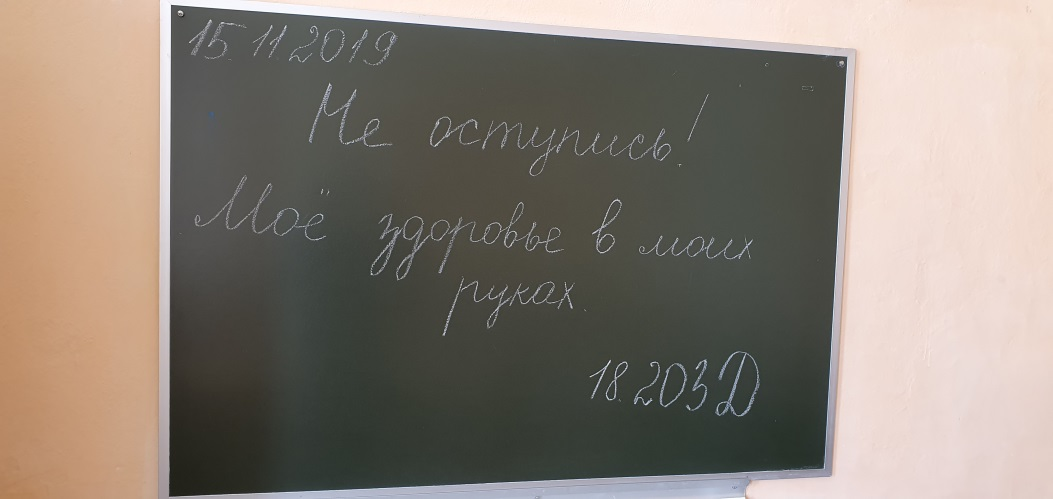 15.11 2019
Не оступись!
Моё здоровье в моих
руках.
18.203Д